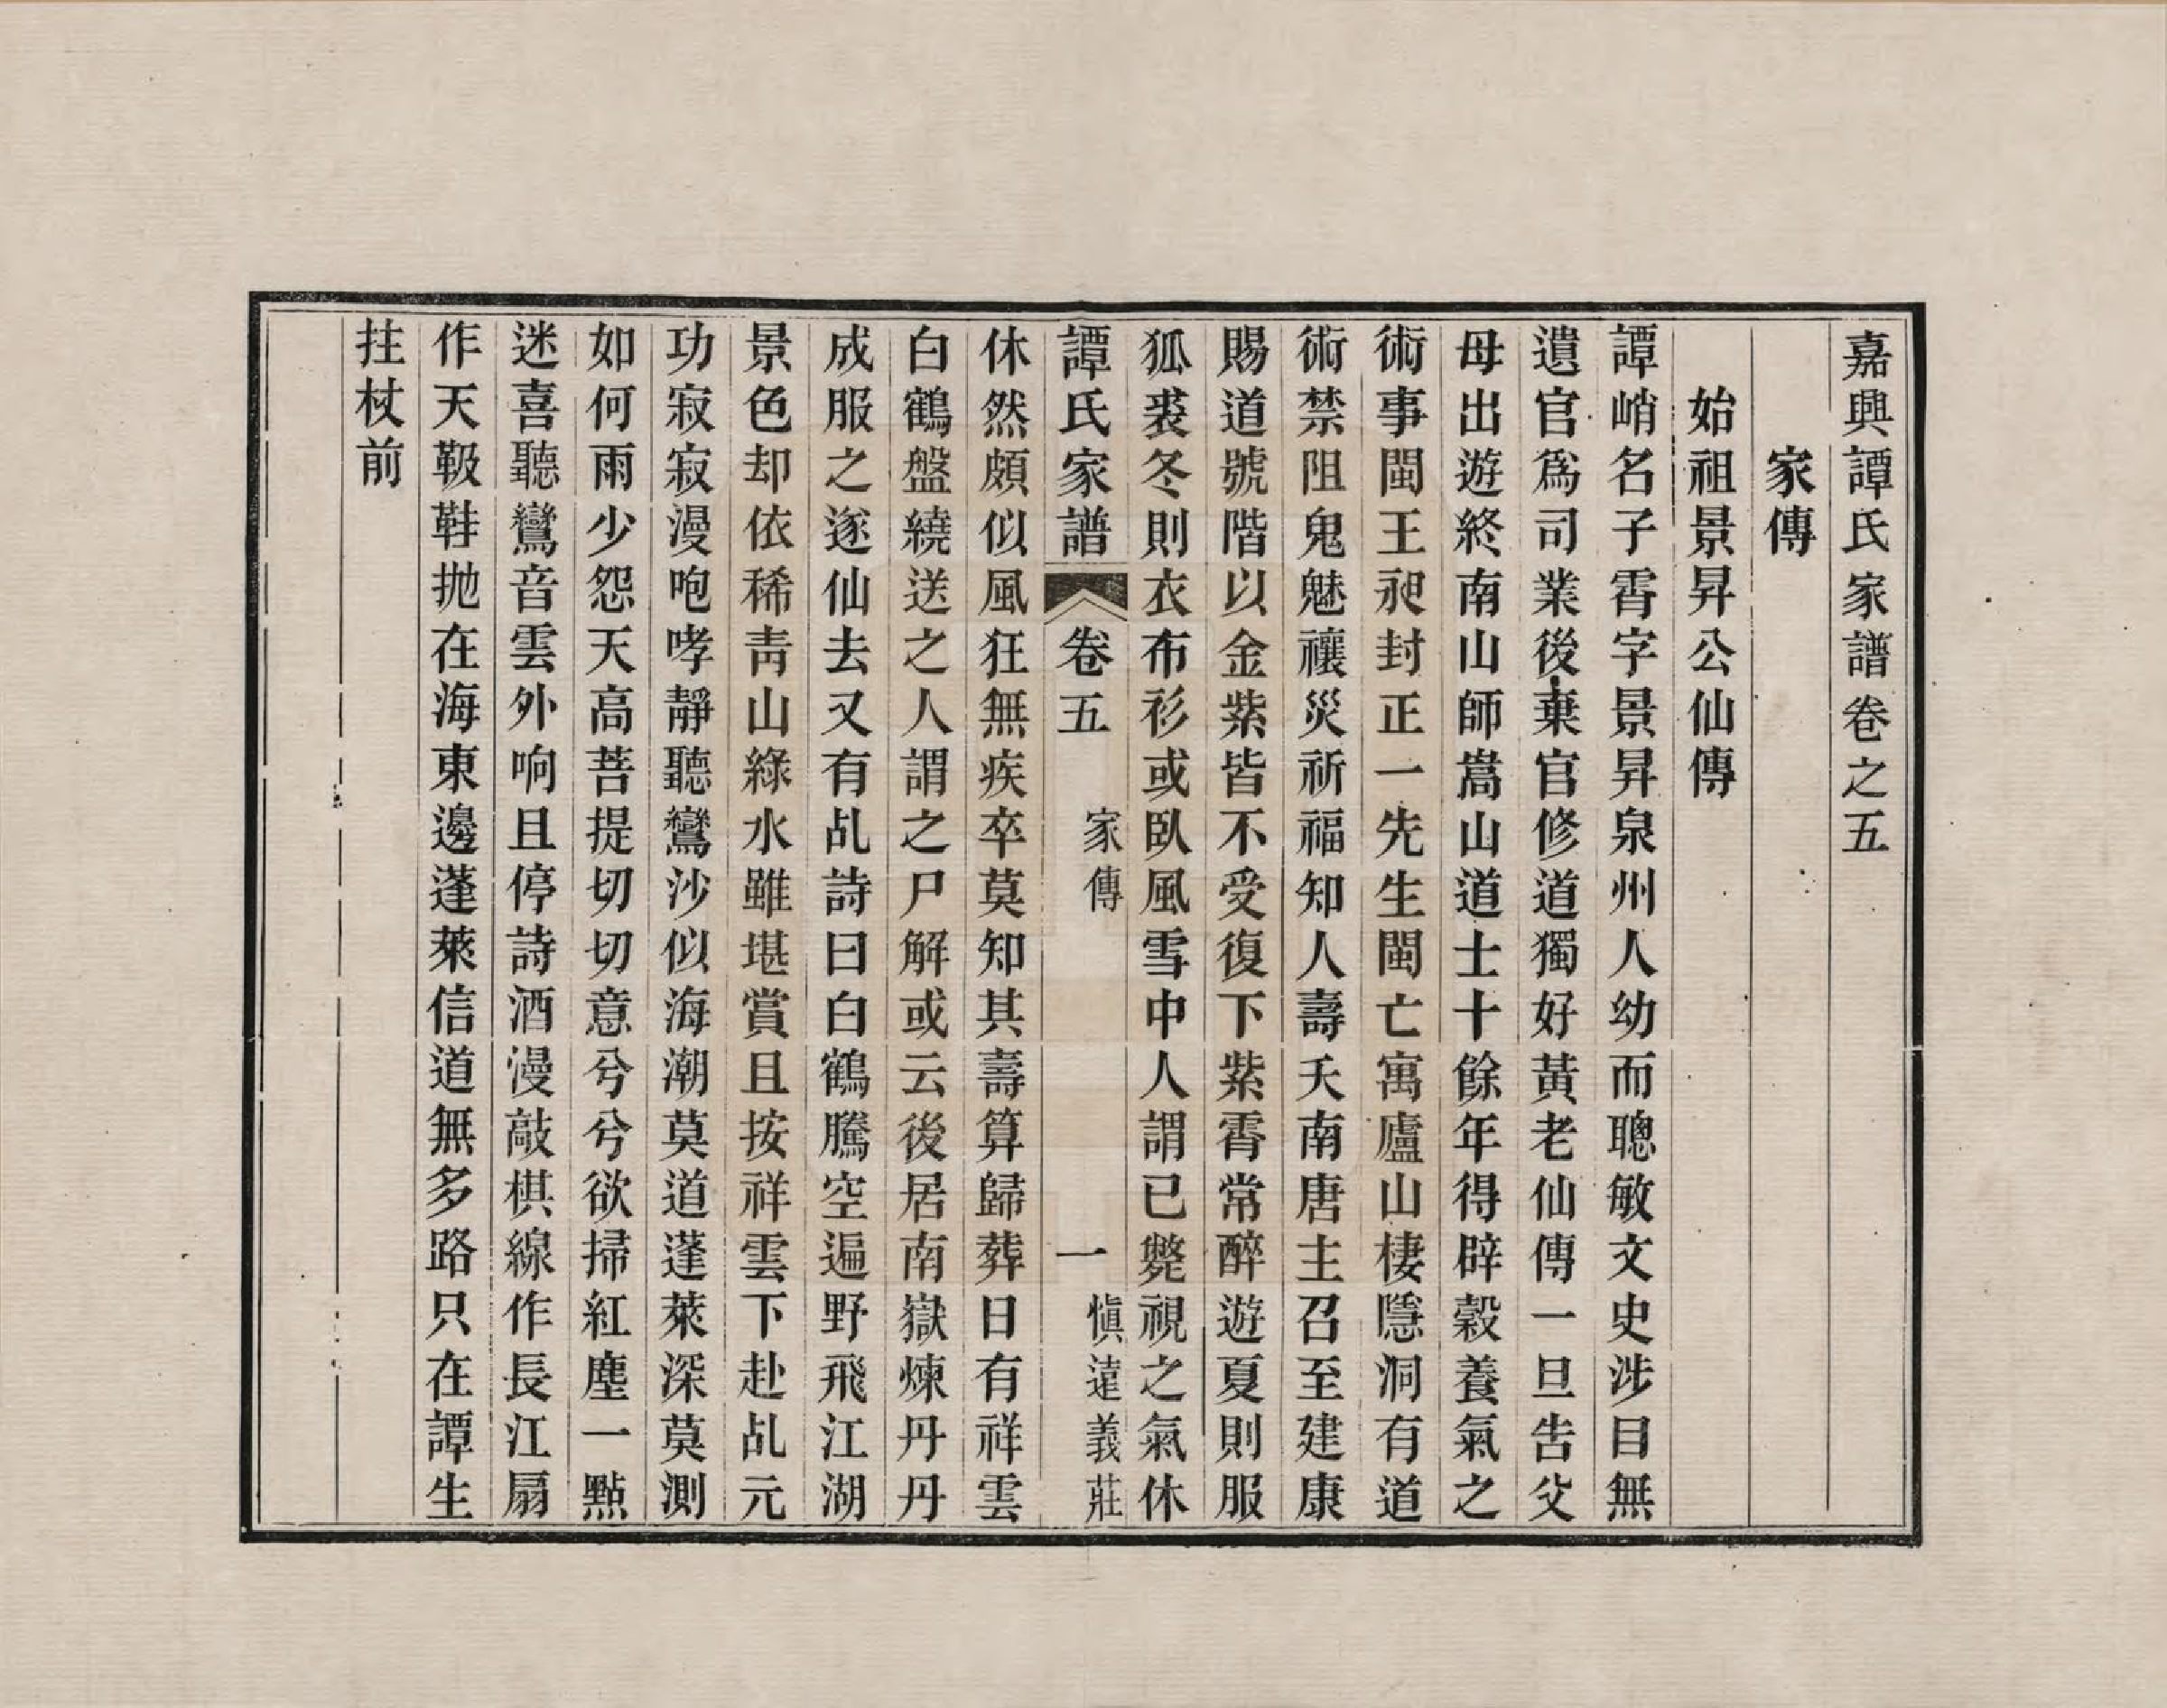 嘉興譚氏家譜卷之五
家傳
始祖景昇公仙傳
譚峭名子霄字景昇泉州人幼而聰敏文史涉目無
遺官爲司業後棄官修道獨好黃老仙傳一旦告父
母出遊終南山師嵩山道士十餘年得辟穀養氣之
術事閩王昶封正一先生閩亡寓廬山棲隱洞有道
術禁阻鬼魅禳災祈福知人壽夭南唐主召至建康
賜道號階以金紫皆不受復下紫霄常醉遊夏則服
狐裘冬則衣布衫或臥風雪中人謂已斃視之氣休
譚氏家譜
卷五
家傳
一
愼遠義莊
休然頗似風狂無疾卒莫知其壽算歸葬日有祥雲
白鶴盤繞送之人謂之尸解或云後居南嶽煉丹丹
成服之逐仙去又有乩詩曰白鶴騰空遍野飛江湖
景色却依稀靑山綠水雖堪賞且按祥雲下赴乩元
功寂寂漫咆哮靜聽鸞沙似海潮莫道蓬萊深莫測
如何雨少怨天高菩提切切意兮兮欲掃紅塵一點
迷喜聽鸞音雲外响且停詩酒漫敲棋線作長江扇
作天靸鞋抛在海東邊蓬萊信道無多路只在譚生
拄杖前